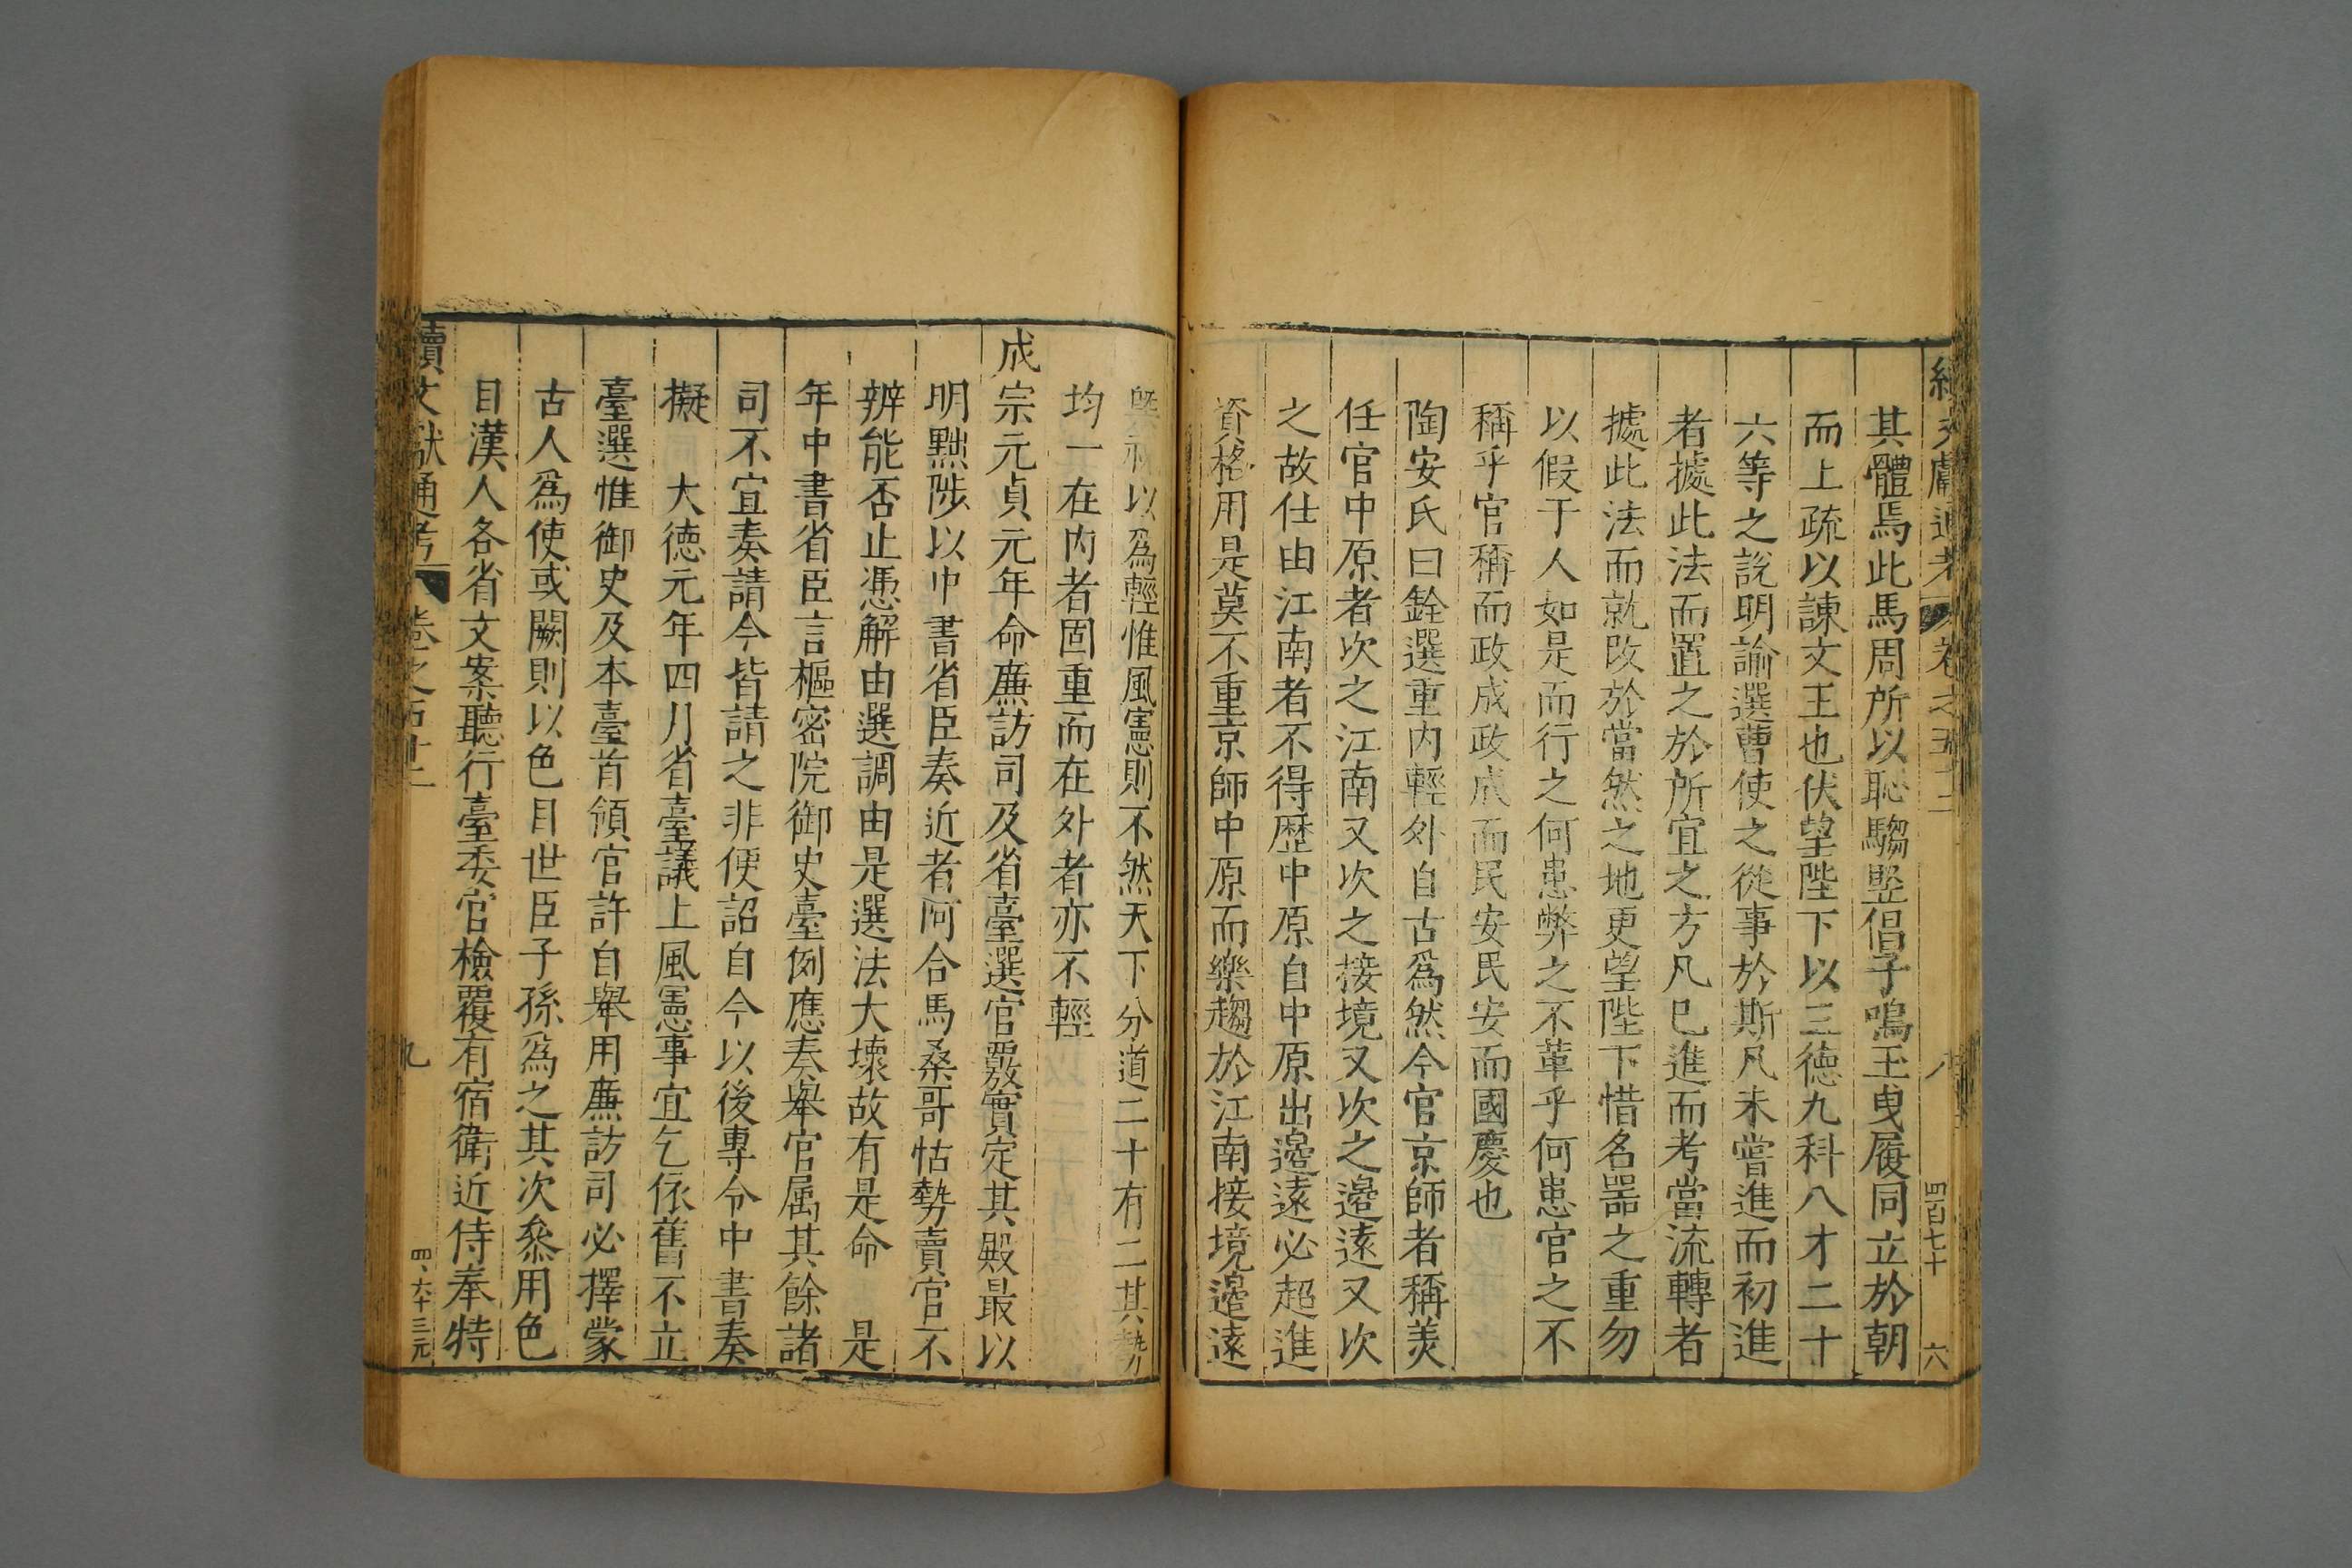 續文獻通考 卷之五十二 八 四百七十 六
其體焉此馬周所以恥騶竪倡子鳴玉曳履同立於朝
而上疏以諫文王也伏望陛下以三德九科八才二十
六等之說明諭選曹使之從事於斯凡未嘗進而初進
者據此法而置之於所宜之方凡已進而考當流轉者
據此法而就改於當然之地更望陛下惜名器之重勿
以假于人如是而行之何患弊之不革乎何患官之不
稱乎官稱而政成政成而民安民安而國慶也
陶安氏曰銓選重内輕外自古爲然今官京師者稱羙
任官中原者次之江南又次之接境又次之邊遠又次
之故仕由江南者不得歷中原自中原出邊遠必超進
資格用是莫不重京師中原而樂趨於江南接境邊遠
以爲輕惟風憲則不然天下分道二十有二其勢
均一在内者固重而在外者亦不輕
成宗元貞元年命廉訪司及省臺選官覈實定其殿最以
明黜陟以中書省臣奏近者阿合馬桑哥怙勢賣官不
辨能否止憑解由選調由是選法大壞故有是命 是
年中書省臣言樞密院御史臺例應奏舉官属其餘諸
司不宜奏請今皆請之非便詔自今以後專令中書奏
擬 大德元年四月省臺議上風憲事宜乞依舊不立
臺選惟御史及本臺首領官許自舉用廉訪司必擇蒙
古人爲使或闕則以色目世臣子孫爲之其次叅用色
目漢人各省文案聽行臺委官檢覆有宿衛近侍奉特
續文獻通考 卷之五十二 九 四、六十三元